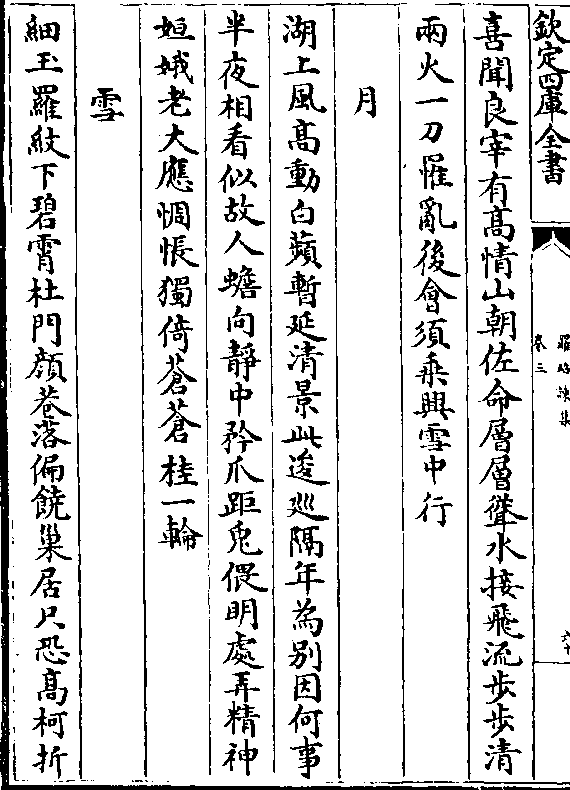 欽定四庫全書
羅昭諫集
卷三
喜聞良宰有髙情山朝佐命層層聳水接飛流步步清
兩火一刀罹亂後會須乗興雪中行
月
湖上風髙動白蘋暫延清景此逡廵隔年為别因何事
半夜相看似故人蟾向靜中矜爪距兎偎明處弄精神
姮娥老大應惆悵獨倚蒼蒼桂一輪
雪
細玉羅紋下碧霄杜門顔巷落偏饒巢居只恐髙柯折